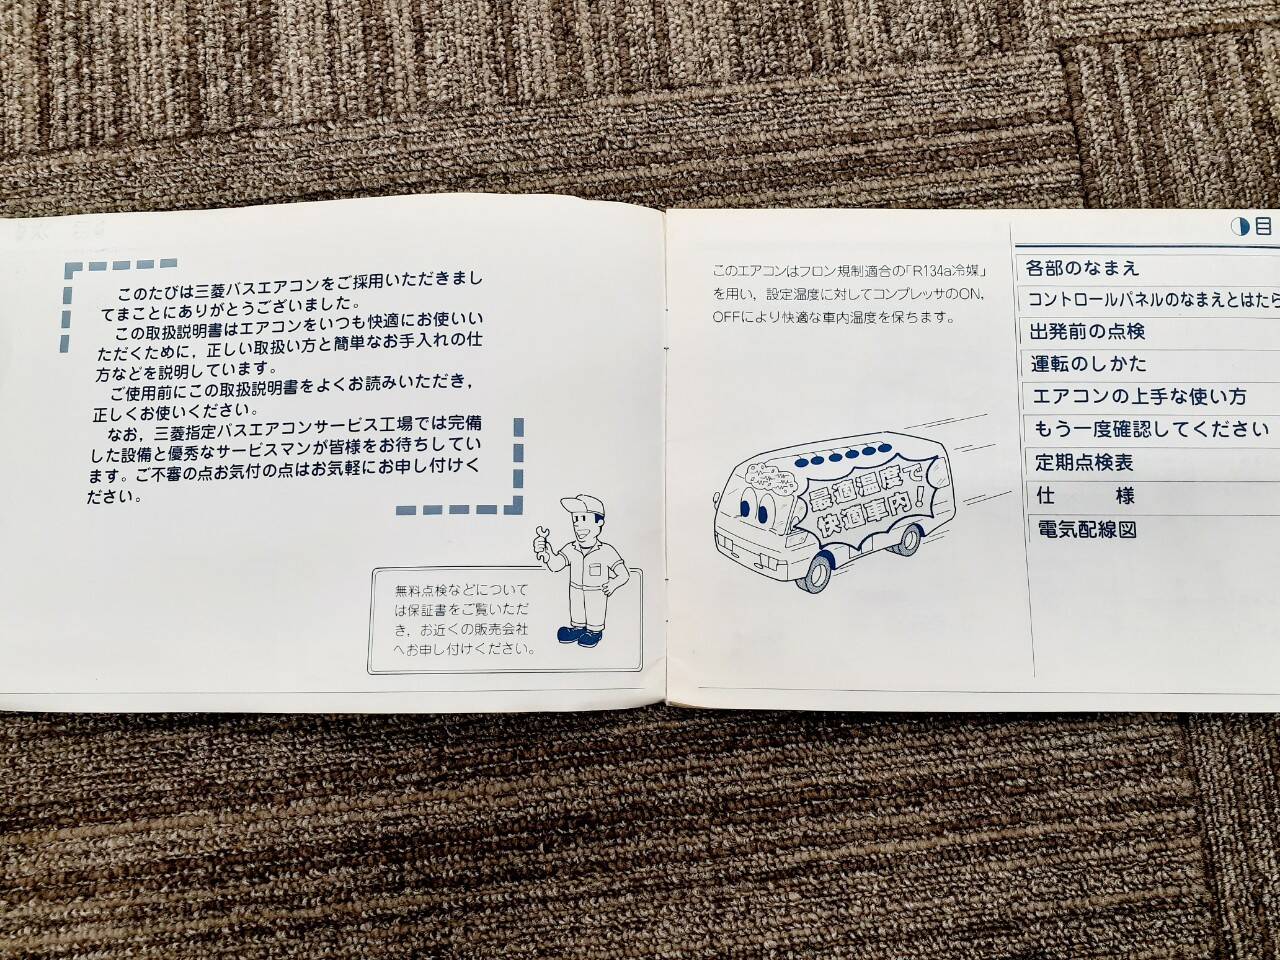 このたびは三菱バスエアコンをご採用いただきまし
てまことにありがとうございました。
この取扱説明書はエアコンをいつも快適にお使いい
ただくために，正しい取扱い方と簡単なお手入れの仕
方などを説明しています。
ご使用前にこの取扱説明書をよくお読みいただき，
正しくお使いください。
なお，三菱指定バスエアコンサービス工場では完備
した設備と優秀なサービスマンが皆様をお待ちしてい
ます。ご不審の点お気付の点はお気軽にお申し付けく
ださい。
無料点検などについて
は保証書をご覧いただ
き，お近くの販売会社
へお申し付けください。
このエアコンはフロン規制適合の「R134a冷媒」
を用い，設定温度に対してコンプレッサのON，
OFFにより快適な車内温度を保ちます。
最適温度で
快適車内！
目
各部のなまえ
コントロールパネルのなまえとはたら
出発前の点検
運転のしかた
エアコンの上手な使い方
もう一度確認してください
定期点検表
仕　　様
電気配線図